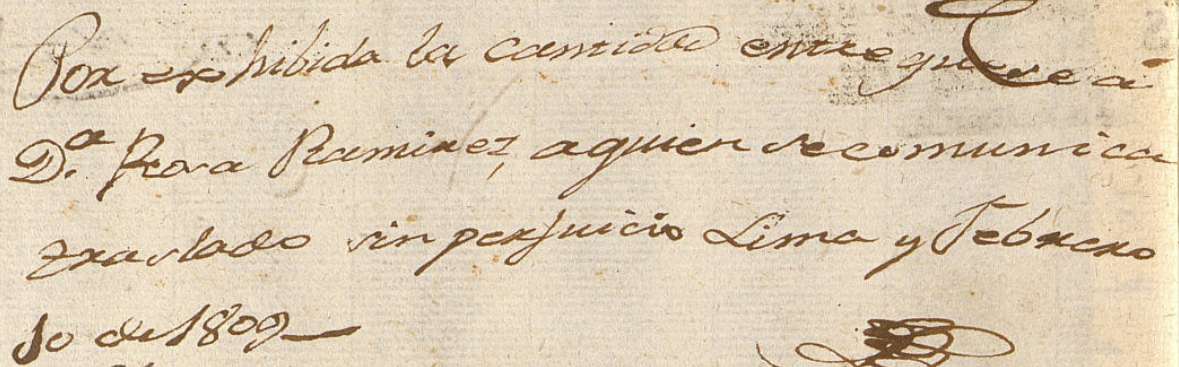 Por exhibida la cantidad entreguese a
D.a Rosa Ramirez, aquien se comunica
traslado sin perjuicio Lima y Febrero
10 de 1809